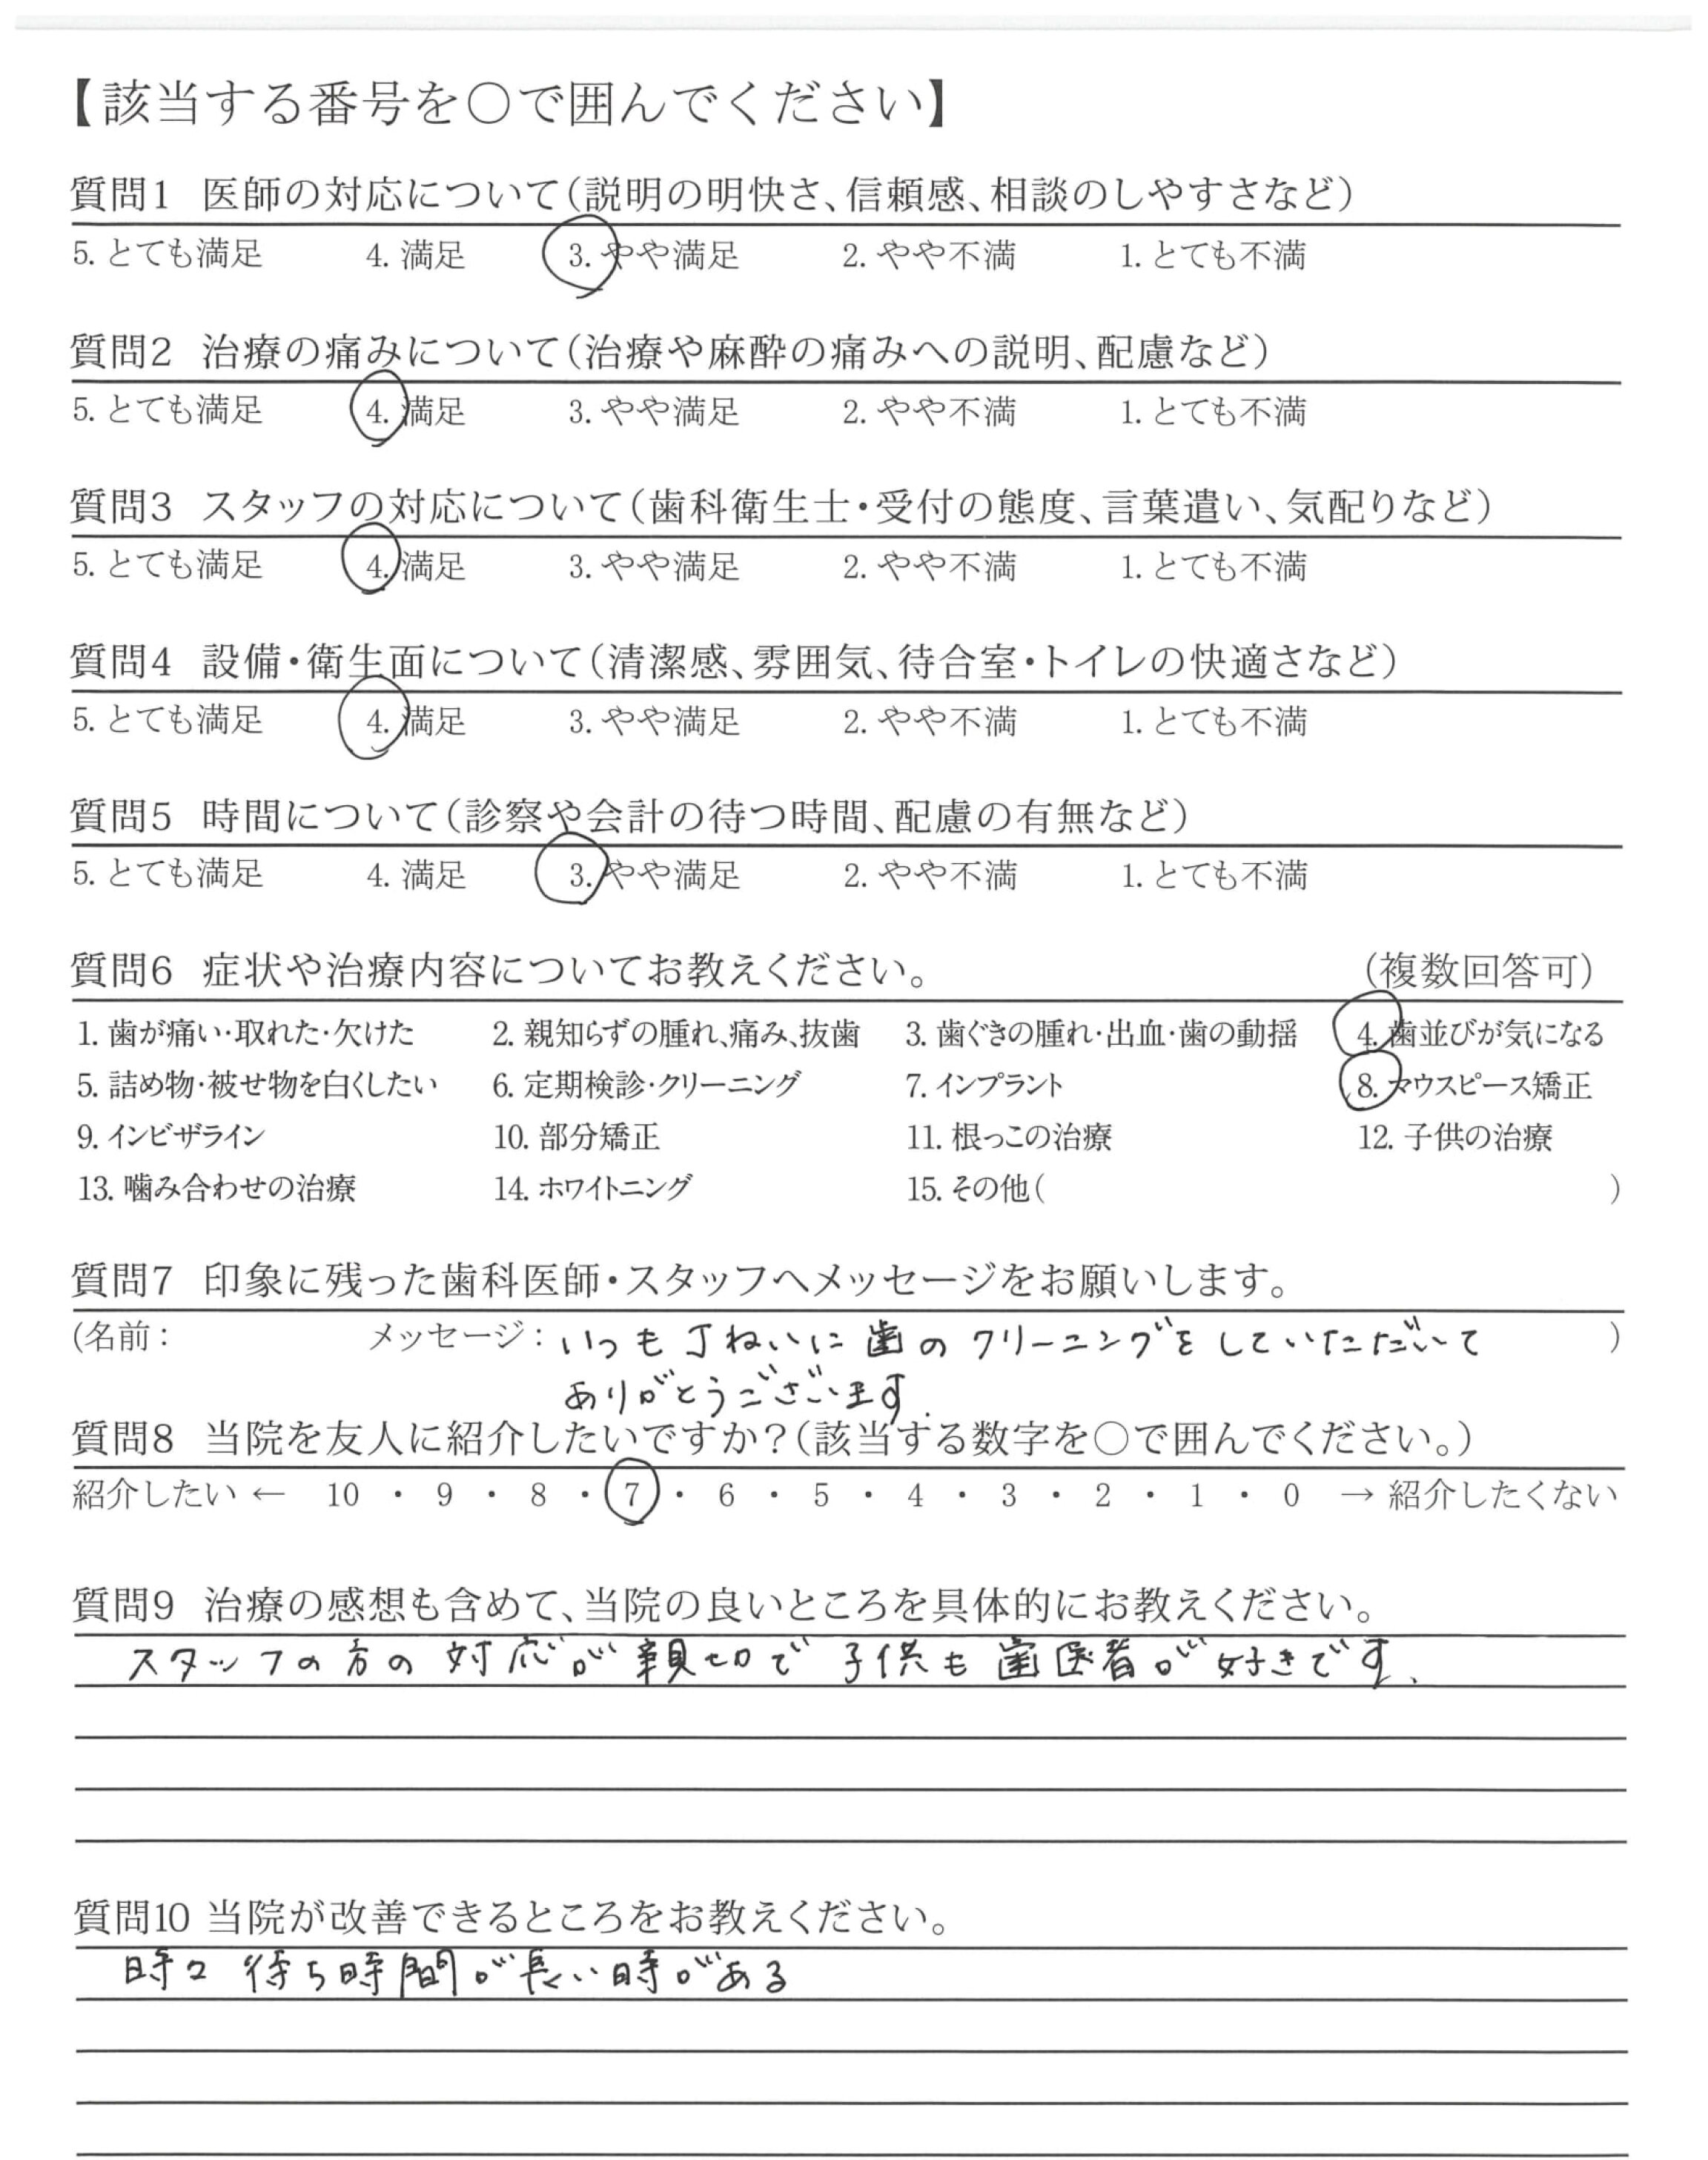 【該当する番号を○で囲んでください】
質問1 医師の対応について(説明の明快さ、信頼感、相談のしやすさなど)
5. とても満足 4. 満足 3. やや満足 2. やや不満 1. とても不満
質問2 治療の痛みについて(治療や麻酔の痛みへの説明、配慮など)
5. とても満足 4. 満足 3. やや満足 2. やや不満 1. とても不満
質問3 スタッフの対応について(歯科衛生士・受付の態度、言葉遣い、気配りなど)
5. とても満足 4. 満足 3. やや満足 2. やや不満 1. とても不満
質問4 設備・衛生面について(清潔感、雰囲気、待合室・トイレの快適さなど)
5. とても満足 4. 満足 3. やや満足 2. やや不満 1. とても不満
質問5 時間について(診察や会計の待つ時間、配慮の有無など)
5. とても満足 4. 満足 3. やや満足 2. やや不満 1. とても不満
質問6 症状や治療内容についてお教えください。 (複数回答可)
1. 歯が痛い・取れた・欠けた 2. 親知らずの腫れ、痛み、抜歯 3. 歯ぐきの腫れ・出血・歯の動揺 4. 歯並びが気になる
5. 詰め物・被せ物を白くしたい 6. 定期検診・クリーニング 7. インプラント 8. マウスピース矯正
9. インビザライン 10. 部分矯正 11. 根っこの治療 12. 子供の治療
13. 噛み合わせの治療 14. ホワイトニング 15. その他( )
質問7 印象に残った歯科医師・スタッフへメッセージをお願いします。
(名前: メッセージ: いつも丁ねいに歯のクリーニングをしていただいて )
ありがとうございます.
質問8 当院を友人に紹介したいですか?(該当する数字を○で囲んでください。)
紹介したい ← 10 ・ 9 ・ 8 ・ 7 ・ 6 ・ 5 ・ 4 ・ 3 ・ 2 ・ 1 ・ 0 → 紹介したくない
質問9 治療の感想も含めて、当院の良いところを具体的にお教えください。
スタッフの方の対応が親切で子供も歯医者が好きです、
質問10 当院が改善できるところをお教えください。
時々待ち時間が長い時がある